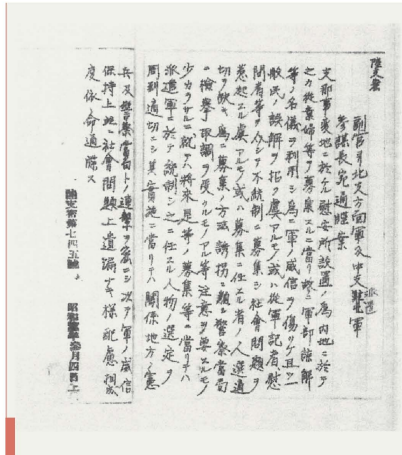 陸支密
副官ヨリ北支方面軍及中支派遣軍
参謀長宛通牒案
支那事変地ニ於ケル慰安所設置ノ為内地ニ於テ
之カ従業婦等ヲ募集スルニ当リ故ラニ軍部諒解
等ノ名儀ヲ利用シ為ニ軍ノ威信ヲ傷ツケ且ツ一
般民ノ誤解ヲ招ク虞アルモノ或ハ従軍記者慰
問者等ヲ介シテ不統制ニ募集シ社会問題ヲ
惹起スル虞アルモノ或ハ募集ニ任スル者ノ人選適
切ヲ欠キ為ニ募集ノ方法誘拐ニ類シ警察当局
ニ検挙取調ヲ受クルモノアル等注意ヲ要スルモノ
少カラサルニ就テハ将来是等ノ募集等ニ当リテハ
派遣軍ニ於テ統制シ之ニ任スル人物ノ選定ヲ
周到適切ニシ其実施ニ当リテハ関係地方ノ憲
兵及警察当局トノ連繋ヲ密ニシ次テ軍ノ威信
保持上並ニ社会問題上遺漏ナキ様配慮相成
度依命通牒ス
陸支密第七四五號 昭和拾参年参月四日